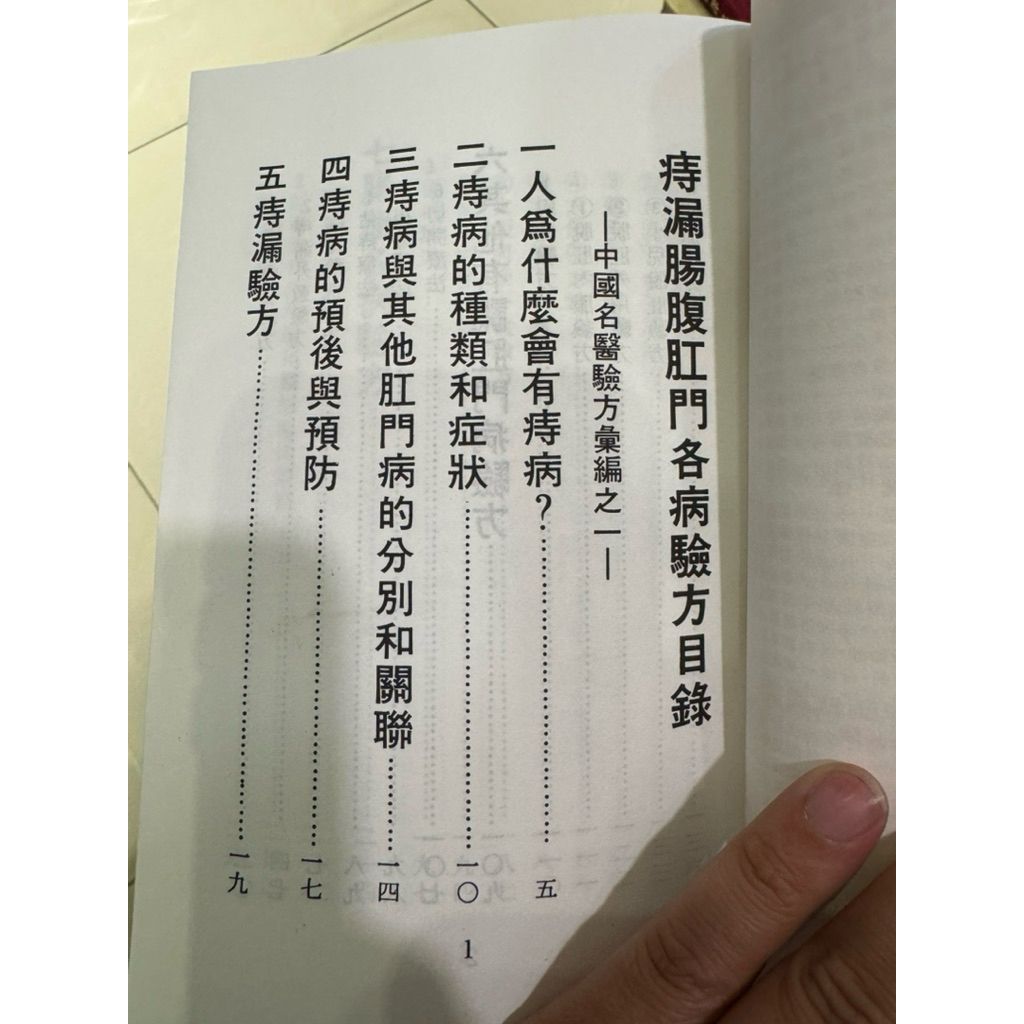 痔漏腸腹肛門各病驗方目錄
—中國名醫驗方彙編之一—
一人爲什麼會有痔病?……………………五
二痔病的種類和症狀……………………一〇
三痔病與其他肛門病的分別和關聯………一四
四痔病的預後與預防……………………一七
五痔漏驗方……………………一九
1